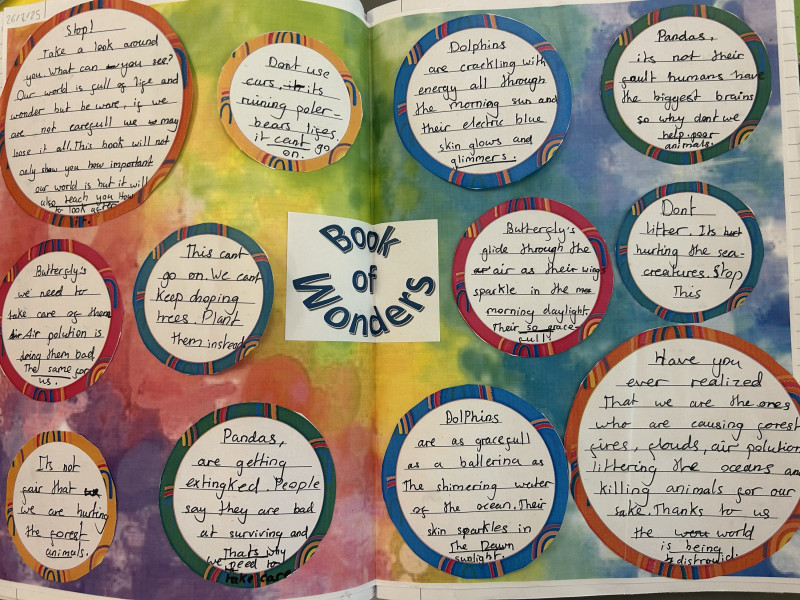 26/2/25
Stop!
Take a look around
you. What can you see?
Our world is full of life and
wonder but be ware, if we
are not carefull we may
lose it all. This book will not
only show you how important
our world is but it will
also teach you How
to look after
it.
Dont use
cars, its
ruining poler-
bears lives
it cant go
on.
Butterfly's
we need to
take care of them
Air polution is
doing them bad,
The same for
us.
This cant
go on. We cant
keep choping
trees. Plant
them instead
Its not
fair that
we are hurting
the forest
animals.
Pandas,
are getting
extingked. People
say they are bad
at surviving and
Thats why
we need to
take care
Book
of
Wonders
Dolphins
are crackling with
energy all through
the morning sun and
their electric blue
skin glows and
glimmers.
Pandas,
its not their
fault humans have
the biggest brains
so why dont we
help poor
animals.
Butterfly's
glide through the
air as their wings
sparkle in the
morning daylight.
Their so grace-
fully
Dont
litter. Its
hurting the sea-
creatures. Stop
This
Dolphins
are as gracefull
as a ballerina as
The shimering water
of the ocean. Their
skin sparkles in
The Dawn
sunlight.
Have you
ever realized
That we are the ones
who are causing forest
fires, floods, air polution
littering the oceans and
killing animals for our
sake. Thanks to us
the world
is being
distrowid.